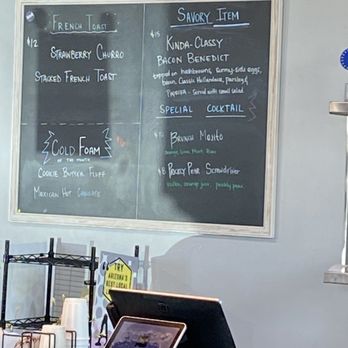 FRENCH TOAST
$12
STRAWBERRY CHURRO
STACKED FRENCH TOAST
COLD FOAM
OF THE MONTH
COOKIE BUTTER FLUFF
MEXICAN HOT CHOCOLATE
SAVORY ITEM
$15
KINDA-CLASSY
BACON BENEDICT
topped on hashbrowns, sunny-side eggs,
bacon, Classic Hollandaise, parsley,
PAPRIKA - Served with small salad
SPECIAL COCKTAIL
BRUNCH MOJITO
Lime, Mint, Rum
$8 PRICKLY PEAR SCREWDRIVER
vodka, orange juice, prickly pear
TRY
ARIZONA'S
BEST LOCAL